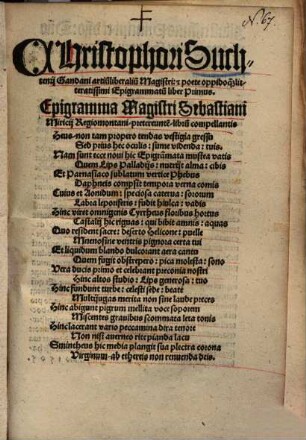 N. 67.
Christophori Such
tenij Gandani artiũ liberaliũ Magistri: poete oppido q̃ litteratissimi
Epigrammatũ liber Primus.
Epigramma Magistri Sebastiani
Miricij Regiomontani pretereuntẽ librũ compellantis
Heus non tam propero tendas vestigia gressu
Sed prius hec oculis: sume videnda: tuis.
Nam sunt ecce noui hic Epigrãmata mystea vatis
Quem Lips Palladijs: nutrijt alma: cibis
Et Parnasiaco sublatum vertice Phebus
Daphneis compsit tempora verna comis
Cuius et Aonidum: speciosa caterua: sororum
Labra leporiferis: fudit hiulca: vadis
Hinc viret omnigenis Cyrrheus floribus hortus
Castalij hic riguas: qui bibit amnis: aquas
Quo resident sacre: deserto Helicone: puelle
Mnemosine ventris pignora certa tui
Et liquidum blando dulcorant aera cantu
Quem fugit obstrepero: pica molesta: sono
Vera ducis primo et celebrant preconia nostri
Hinc altos studio: Lips generosa: tuo
Hinc fundunt turbe: celesti sede: beate
Multijuga merita non sine laude preces
Hinc abigunt pigrum mellita voce soporum
Miscentes grauibus scommata leta tonis
Hinc lacerant vario peccamina dira tenore
Non nisi auerneo rite pianda lacu
Smintheus hic media plangit sua plectra corona
Virginum ab ethereis non renuenda deis.